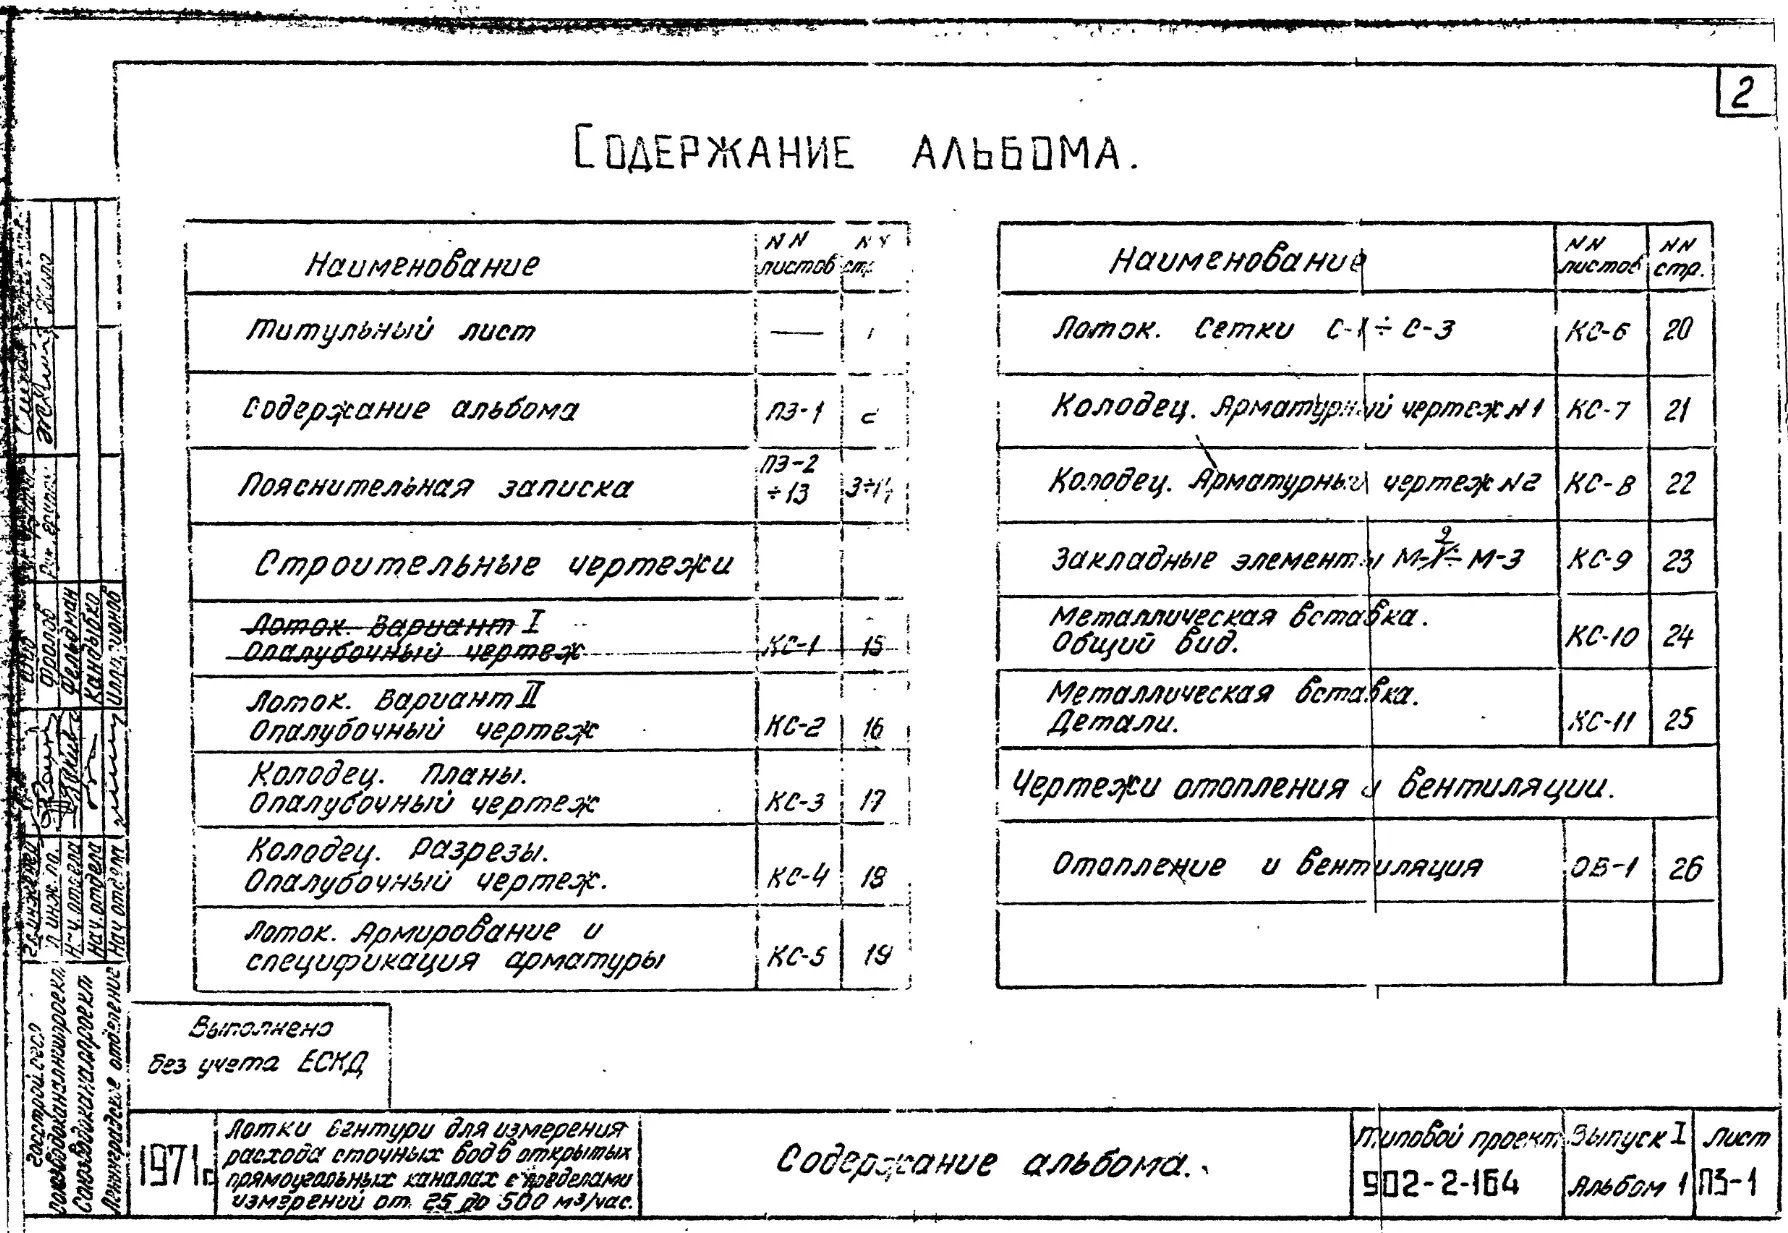 2
Содержание альбома.
Наименование NN листов NN стр.
Титульный лист — 1
Содержание альбома ПЗ-1 2
Пояснительная записка ПЗ-2 ÷13 3÷14
Строительные чертежи
Лоток. Вариант I
Опалубочный чертеж КС-1 15
Лоток. Вариант II
Опалубочный чертеж КС-2 16
Колодец. Планы.
Опалубочный чертеж КС-3 17
Колодец. Разрезы.
Опалубочный чертеж. КС-4 18
Лоток. Армирование и
спецификация арматуры КС-5 19
Наименование NN листов NN стр.
Лоток. Сетки С-1 ÷ С-3 КС-6 20
Колодец. Арматурный чертеж N1 КС-7 21
Колодец. Арматурный чертеж N2 КС-8 22
Закладные элементы М-2 ÷ М-3 КС-9 23
Металлическая вставка.
Общий вид. КС-10 24
Металлическая вставка.
Детали. КС-11 25
Чертежи отопления и вентиляции.
Отопление и вентиляция ОВ-1 26
Выполнено
без учета ЕСКД
1971г
Лотки Вентури для измерения
расхода сточных вод в открытых
прямоугольных каналах с пределами
измерений от 25 до 500 м3/час.
Содержание альбома.
Типовой проект
902-2-164
Выпуск I
Альбом 1
Лист
ПЗ-1
Госстрой СССР
Союзводоканалниипроект
Союзводоканалпроект
Ленинградское отделение
Гл. инженер
Гл. инж. пр.
Нач. отдела
Нач. отдела
Нач. отдела
Фролов
Фельдман
Кандыбко
Илларионов